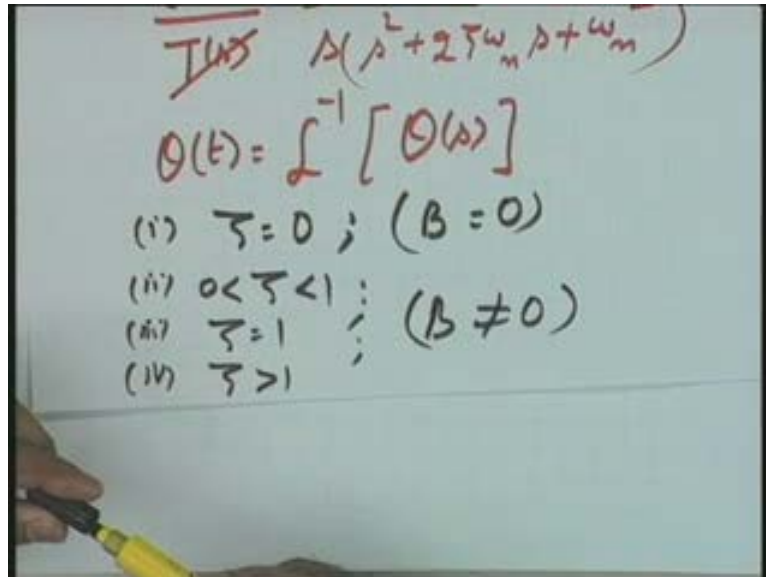 T(s) s(s² + 2ζω_n s + ω_n²)
θ(t) = ℒ⁻¹ [θ(s)]
(i) ζ = 0 ; (B = 0)
(ii) 0 < ζ < 1 ;
(iii) ζ = 1 ; (B ≠ 0)
(iv) ζ > 1 ;